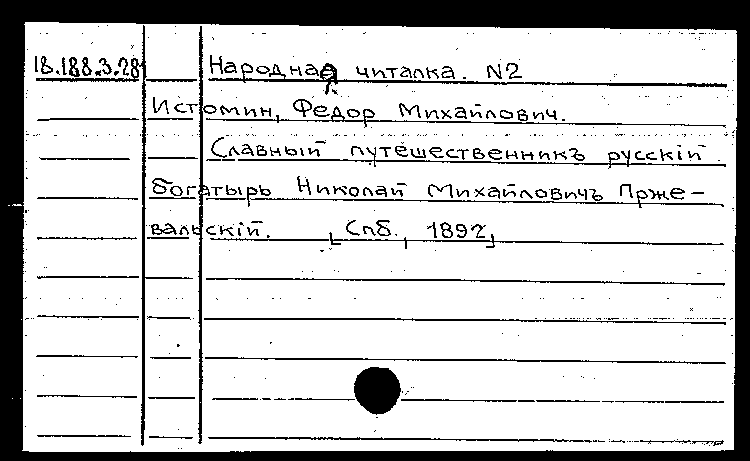 18.188.3.28¹ Народная читалка. N2
Истомин, Федор Михайлович.
Славный путешественникъ русскій
богатырь Николай Михайловичъ Прже-
вальскій. [Спб., 1892]